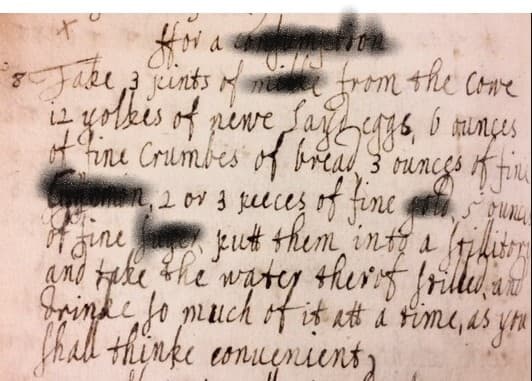 x
ffor a
8 Take 3 pints of from the Cowe
12 yolkes of newe layd eggs, 6 ounces
of fine Crumbes of bread, 3 ounces of fin
, 2 or 3 peeces of fine 5 ounc
of fine putt them into a stillitor
and take the water therof stilled, and
drinke so much of it att a time, as you
shall thinke conuenient,